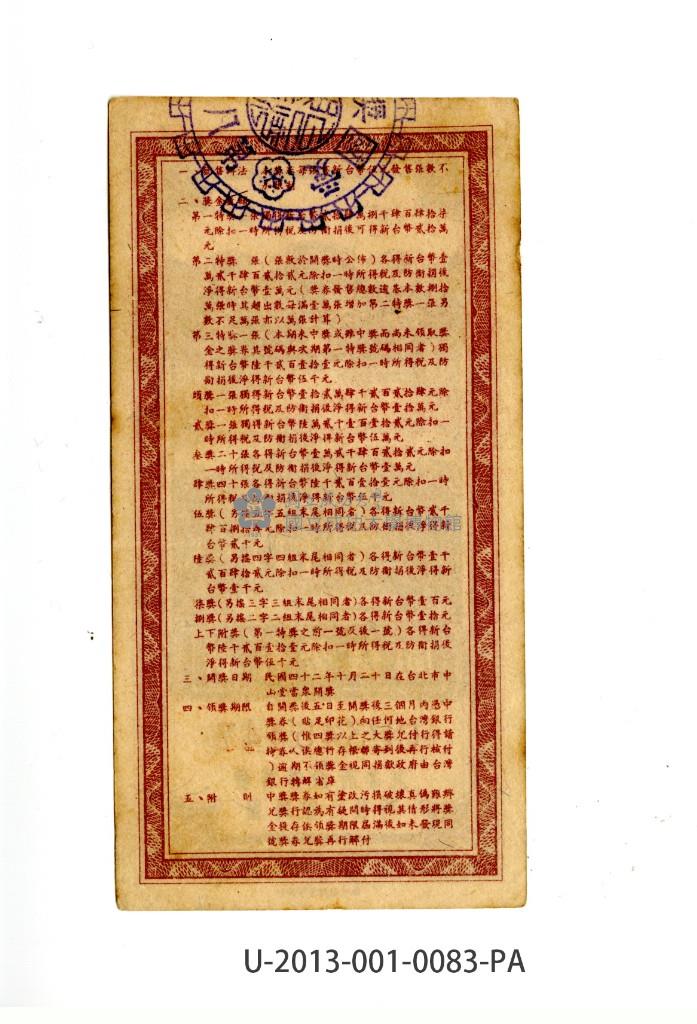 二、獎金
元
第二特獎 張(張數於開獎時公佈)各得新台幣壹
萬貳千肆百貳拾貳元除扣一時所得稅及防衛捐後
淨得新台幣壹萬元(獎券發售總數逾基本數捌拾
萬張時其超出數每滿壹萬張增加第二特獎一張另
數不足萬張亦以萬張計算)
第三特獎一張(本期未中獎或雖中獎而尚未領取獎
金之獎券其號碼與次期第一特獎號碼相同者)獨
得新台幣陸千貳百壹拾壹元除扣一時所得稅及防
衛捐後淨得新台幣伍千元
頭獎一張獨得新台幣壹拾貳萬肆千貳百貳拾肆元除
扣一時所得稅及防衛捐後淨得新台幣壹拾萬元
貳獎一張獨得新台幣陸萬貳千壹百壹拾貳元除扣一
時所得稅及防衛捐後淨得新台幣伍萬元
叁獎二十張各得新台幣壹萬貳千肆百貳拾貳元除扣
一時所得稅及防衛捐後淨得新台幣壹萬元
肆獎四十張各得新台幣陸千貳百壹拾壹元除扣一時
所得稅及防衛捐後淨得新台幣伍千元
伍獎(另搖五字五組末尾相同者)各得新台幣貳千
肆百捌拾肆元除扣一時所得稅及防衛捐後淨得新
台幣貳千元
陸獎(另搖四字四組末尾相同者)各得新台幣壹千
貳百肆拾貳元除扣一時所得稅及防衛捐後淨得新
台幣壹千元
柒獎(另搖三字三組末尾相同者)各得新台幣壹百元
捌獎(另搖二字二組末尾相同者)各得新台幣壹拾元
上下附獎(第一特獎之前一號及後一號)各得新台
幣陸千貳百壹拾壹元除扣一時所得稅及防衛捐後
淨得新台幣伍千元
三、開獎日期 民國四十二年十月二十日在台北市中
山堂當眾開獎
四、領獎期限 自開獎後五日至開獎後三個月內憑中
獎券(貼足印花)向任何地台灣銀行
領獎(惟四獎以上之大獎兌付行得請
持券人俟總行存根聯寄到後再行核付
)逾期不領獎金視同捐獻政府由台灣
銀行轉解省庫
五、附 則 中獎獎券如有塗改污損破壞真偽難辨
兌獎行認為有疑問時得視其情形將獎
金提存俟領獎期限屆滿後如未發現同
號獎券兌獎再行解付
U-2013-001-0083-PA